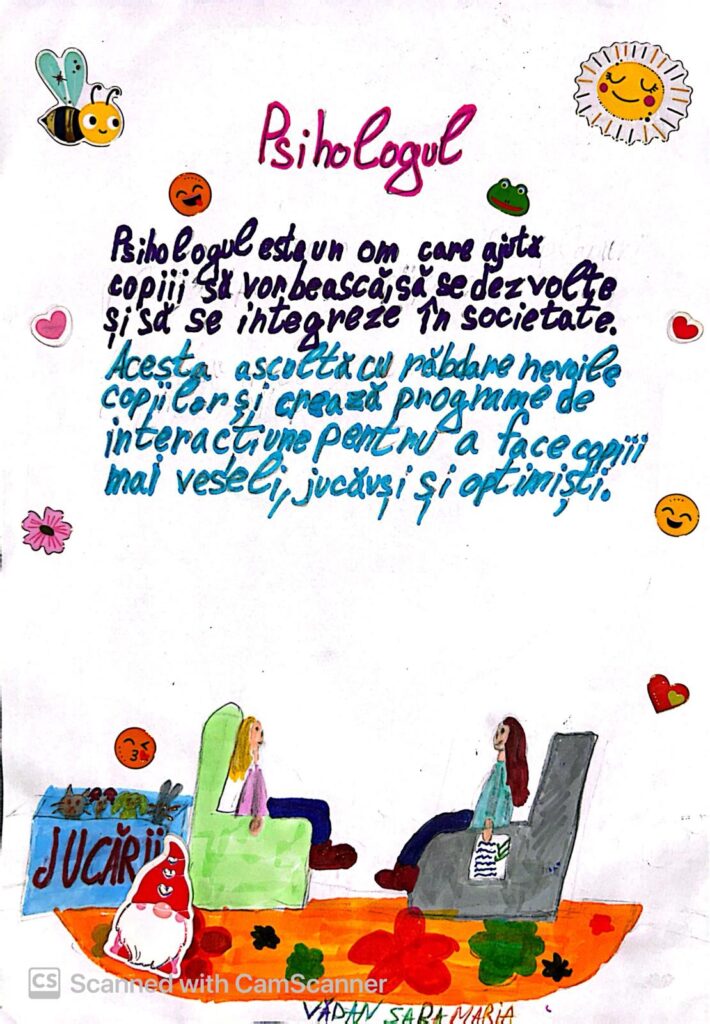 Psihologul
Psihologul este un om care ajută
copiii să vorbească, să se dezvolte
și să se integreze în societate.
Acesta ascultă cu răbdare nevoile
copiilor și crează programe de
interacțiune pentru a face copiii
mai veseli, jucăuși și optimiști.
JUCĂRII
CS Scanned with CamScanner
VĂDAN SARA MARIA